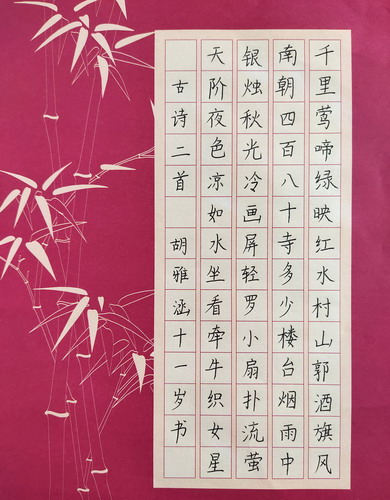 千里莺啼绿映红水村山郭酒旗风
南朝四百八十寺多少楼台烟雨中
银烛秋光冷画屏轻罗小扇扑流萤
天阶夜色凉如水坐看牵牛织女星
古诗二首 胡雅涵十一岁书